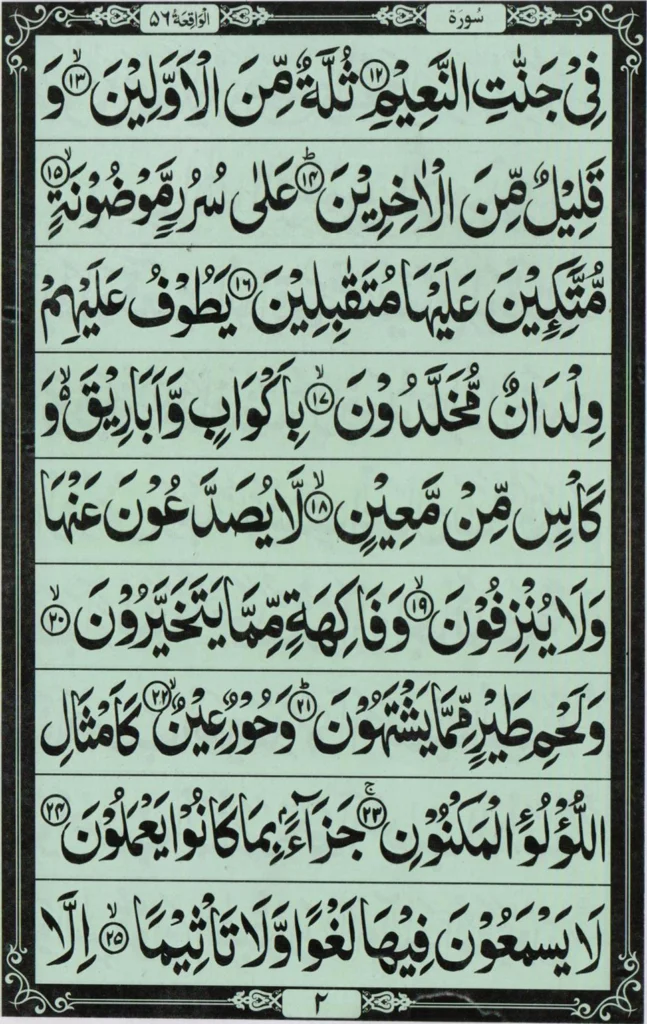 سُورَة الْوَاقِعَة ٥٦
فِيْ جَنّٰتِ النَّعِيْمِ ۝١٢ ثُلَّةٌ مِّنَ الْاَوَّلِيْنَ ۝١٣ۙ وَ
قَلِيْلٌ مِّنَ الْاٰخِرِيْنَ ۝١٤ؕ عَلٰى سُرُرٍ مَّوْضُوْنَةٍ ۝١٥ۙ
مُّتَّكِـِٕيْنَ عَلَيْهَا مُتَقٰبِلِيْنَ ۝١٦ يَطُوْفُ عَلَيْهِمْ
وِلْدَانٌ مُّخَلَّدُوْنَ ۝١٧ۙ بِاَكْوَابٍ وَّاَبَارِيْقَ ۙ۬ وَ
كَاْسٍ مِّنْ مَّعِيْنٍ ۝١٨ۙ لَّا يُصَدَّعُوْنَ عَنْهَا
وَلَا يُنْزِفُوْنَ ۝١٩ۙ وَفَاكِهَةٍ مِّمَّا يَتَخَيَّرُوْنَ ۝٢٠ۙ
وَلَحْمِ طَيْرٍ مِّمَّا يَشْتَهُوْنَ ۝٢١ؕ وَحُوْرٌ عِيْنٌ ۝٢٢ۙ كَاَمْثَالِ
اللُّؤْلُؤِ الْمَكْنُوْنِ ۝٢٣ۚ جَزَآءًۢ بِمَا كَانُوْا يَعْمَلُوْنَ ۝٢٤
لَا يَسْمَعُوْنَ فِيْهَا لَغْوًا وَّلَا تَاْثِيْمًا ۝٢٥ۙ اِلَّا
٢